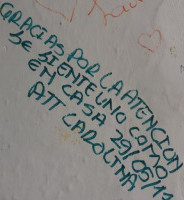 GRACIAS POR LA ATENCION
SE SIENTE UNO COMO
EN CASA 29/05/1
ATT CAROLINA